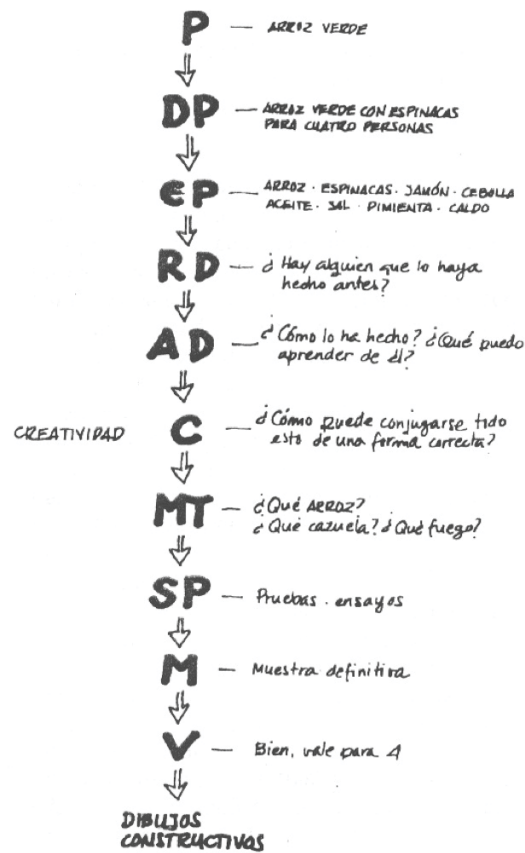 P — ARROZ VERDE
DP — ARROZ VERDE CON ESPINACAS
PARA CUATRO PERSONAS
EP — ARROZ · ESPINACAS · JAMÓN · CEBOLLA
ACEITE · SAL · PIMIENTA · CALDO
RD — ¿Hay alguien que lo haya
hecho antes?
AD — ¿Cómo lo ha hecho? ¿Qué puedo
aprender de él?
CREATIVIDAD C — ¿Cómo puede conjugarse todo
esto de una forma correcta?
MT — ¿Qué ARROZ?
¿Qué cazuela? ¿Qué fuego?
SP — Pruebas · ensayos
M — Muestra definitiva
V — Bien, vale para 4
DIBUJOS
CONSTRUCTIVOS